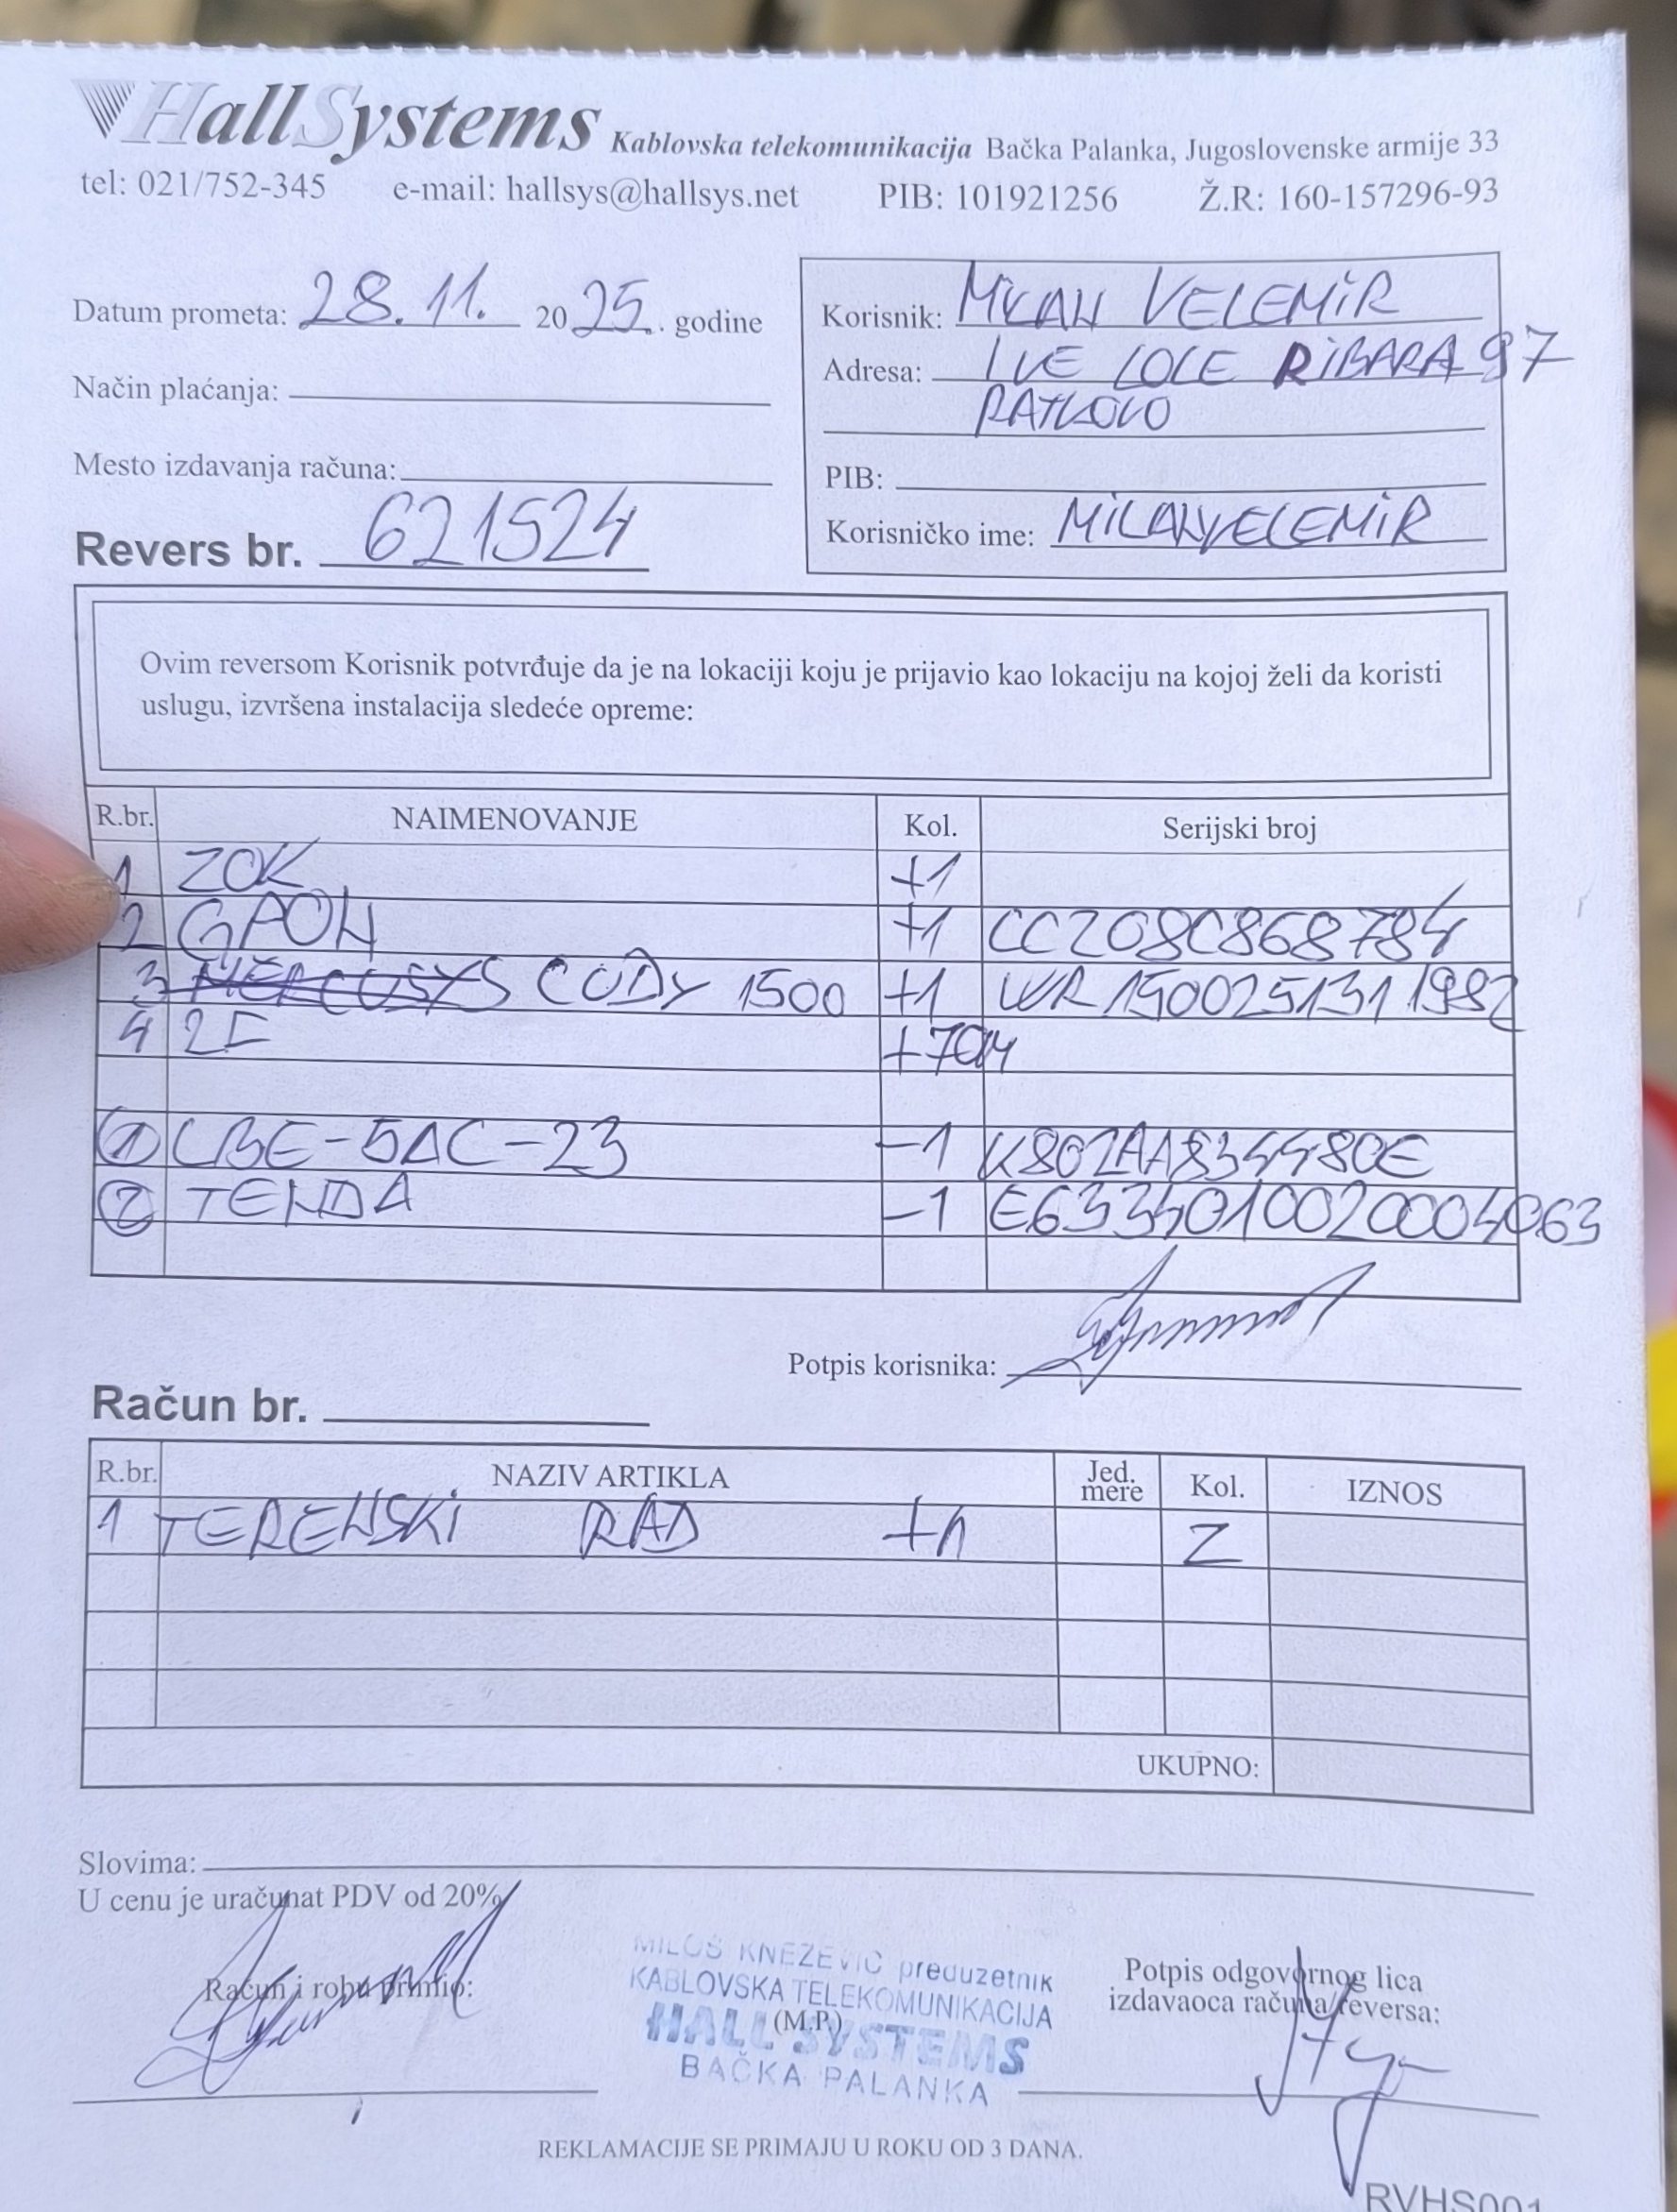 HallSystems Kablovska telekomunikacija Bačka Palanka, Jugoslovenske armije 33
tel: 021/752-345 e-mail: hallsys@hallsys.net PIB: 101921256 Ž.R: 160-157296-93
Datum prometa: 28.11. 2025. godine
Način plaćanja:
Mesto izdavanja računa:
Revers br. 621524
Korisnik: MILAN VELEMIR
Adresa: IVE LOLE RIBARA 97
RATKOVO
PIB:
Korisničko ime: MILANVELEMIR
Ovim reversom Korisnik potvrđuje da je na lokaciji koju je prijavio kao lokaciju na kojoj želi da koristi
uslugu, izvršena instalacija sledeće opreme:
R.br. NAIMENOVANJE Kol. Serijski broj
1 ZOK +1
2 GPON +1 CC2D8C868784
3 MERCUSYS CUDY 1500 +1 WR1500251311982
4 2F +70M
1 LBE-5AC-23 -1
2 TENDA -1 E6334010020004063
Potpis korisnika:
Račun br.
R.br. NAZIV ARTIKLA Jed. mere Kol. IZNOS
1 TERENSKI RAD +1 2
UKUPNO:
Slovima:
U cenu je uračunat PDV od 20%
Račun i robu primio:
MILOŠ KNEŽEVIĆ preduzetnik
KABLOVSKA TELEKOMUNIKACIJA
(M.P.)
HALL SYSTEMS
BAČKA PALANKA
Potpis odgovornog lica
izdavaoca računa/reversa:
REKLAMACIJE SE PRIMAJU U ROKU OD 3 DANA.
RVHS001